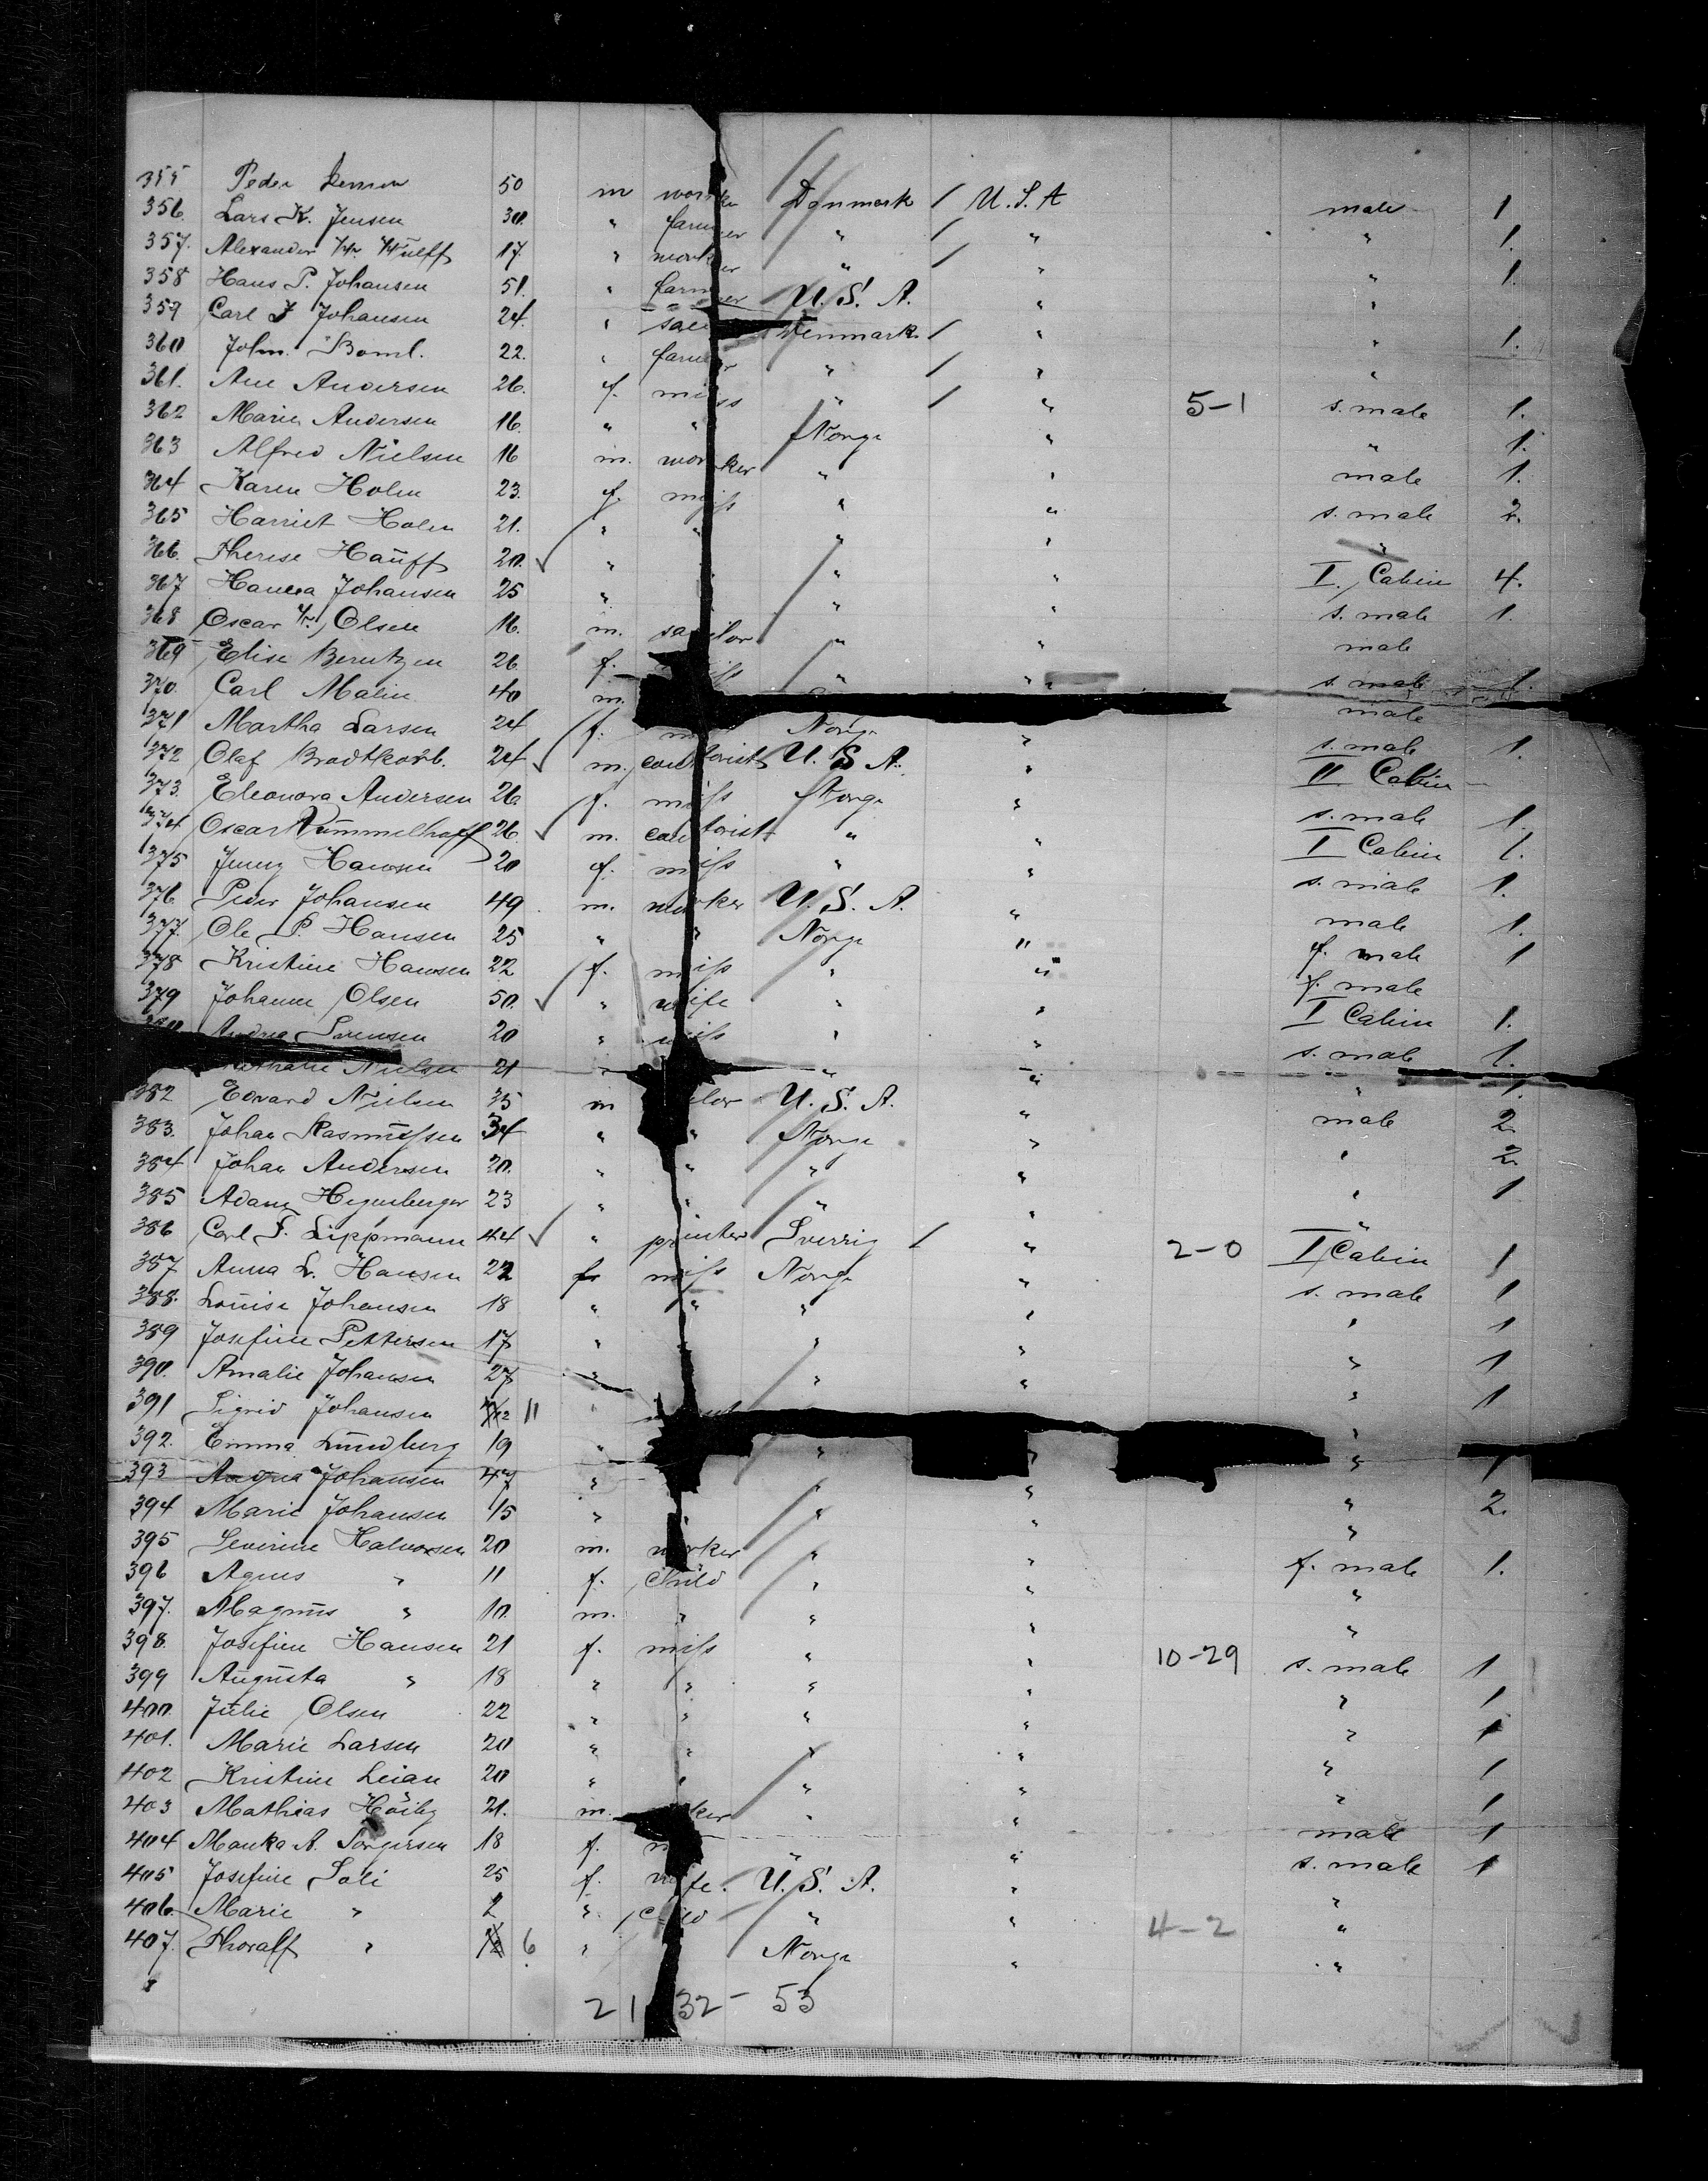 355 Peder Jensen 50 m worker Danmark / U.S.A male 1
356. Lars K. Jensen 30. " farmer " / " " 1.
357. Alexander Wulff 17. " worker " / " " 1.
358 Hans P. Johansen 51. " farmer U.S.A. " "
359 Carl J Johansen 24. " Denmark / " " 1.
360 John 22. " farmer " / " "
361. Ane Andersen 26. f. miss " / " 5-1 s. male 1.
362 Marie Andersen 16. " " Norge " " 1.
363 Alfred Nielsen 16 m. worker " " male 1.
364 Karen Holm 23. f. miss " " s. male 2.
365 Harriet Holm 21. " " " " "
366. Therese Hauff 20. " " " I. Cabin 4.
367 Hanna Johansen 25 " " " s. male 1.
368 Oscar Olsen 16. m. sailor " " male
369 Elise Berntzen 26 f. miss " " s. male 1.
370. Carl Malin 40 m. male
371 Martha Larsen 24 f. Norge " s. male 1.
372 Olaf 24 m. contorist U.S.A. " II Cabin
373. Eleonora Andersen 26 f. miss Norge " s. male 1
374 Oscar Kummelhoff 26. m. contorist " " I Cabin 1.
375 Jenny Hansen 20 f. miss " " s. male 1.
376 Peder Johansen 49 m. worker U.S.A. " male 1.
377. Ole P. Hansen 25 " " Norge " f. male 1
378 Kristine Hansen 22 f. miss " " f. male
379 Johanne Olsen 50. " wife " " I Cabin 1.
Andrea Sorensen 20 " miss " " s. male 1.
Nielsen 21 " " " " 1.
382 Edvard Nielsen 35 m U.S.A. " male 2.
383. Johan Rasmussen 34 " " Norge " " 2.
384 Johan Andersen 20. " " " " " 1
385 Adam Hegenberger 23 " " " " "
386 Carl F. Lippmann 44 " printer Sverrig / " 2-0 I Cabin 1
387 Anna L. Hansen 22 f. miss Norge " s. male 1
388. Louise Johansen 18 " " " " " 1
389 Josefine Pettersen 17 " " " " 1
390. Amalie Johansen 27 " " " " 1
391 Sigrid Johansen 11 " "
392. Emma Lundberg 19 " " " " 1
393 Andrea Johansen 47 " " " " 2.
394 Marie Johansen 15 " " " " "
395 Severine Halvorsen 20 m. worker " " f. male 1.
396 Agnes " 11 f. Child " " "
397. Magnus " 10. m. " " " "
398. Josefine Hansen 21 f. miss " " 10-29 s. male 1
399 Augusta " 18 " " " " " 1
400. Julie Olsen 22 " " " " " 1
401. Marie Larsen 20 " " " " " 1
402 Kristine Leian 20 " " " " " 1
403 Mathias Höiby 21. m. " " male 1
404 A. Torgersen 18 f. " s. male 1
405 Josefine Soli 25 f. wife. U.S.A. " "
406. Marie " 2 " Child " " 4-2 "
407. Thoralf " 6 " Norge " "
21 32- 53